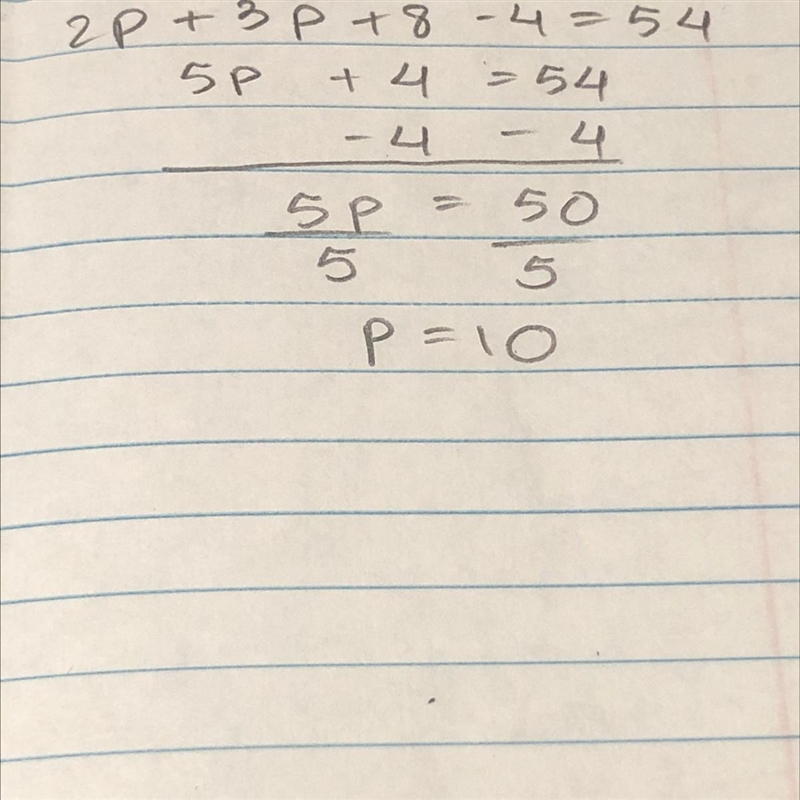 2p + 3p + 8 - 4 = 54
5p + 4 = 54
- 4 - 4
5p = 50
5 5
p = 10